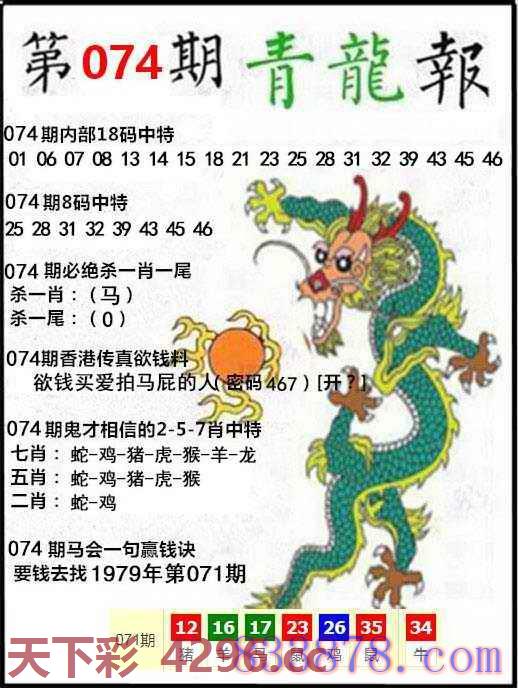 第074期 青龍報
074期内部18码中特
01 06 07 08 13 14 15 18 21 23 25 28 31 32 39 43 45 46
074期8码中特
25 28 31 32 39 43 45 46
074期必绝杀一肖一尾
杀一肖：（马）
杀一尾：（0）
074期香港传真欲钱料
欲钱买爱拍马屁的人（密码467）[开？]
074期鬼才相信的2-5-7肖中特
七肖：蛇-鸡-猪-虎-猴-羊-龙
五肖：蛇-鸡-猪-虎-猴
二肖：蛇-鸡
074期马会一句赢钱诀
要钱去找1979年第071期
071期 12 16 17 23 26 35 34
猪 羊 马 鼠 鸡 鼠 牛
天下彩 4296.cc